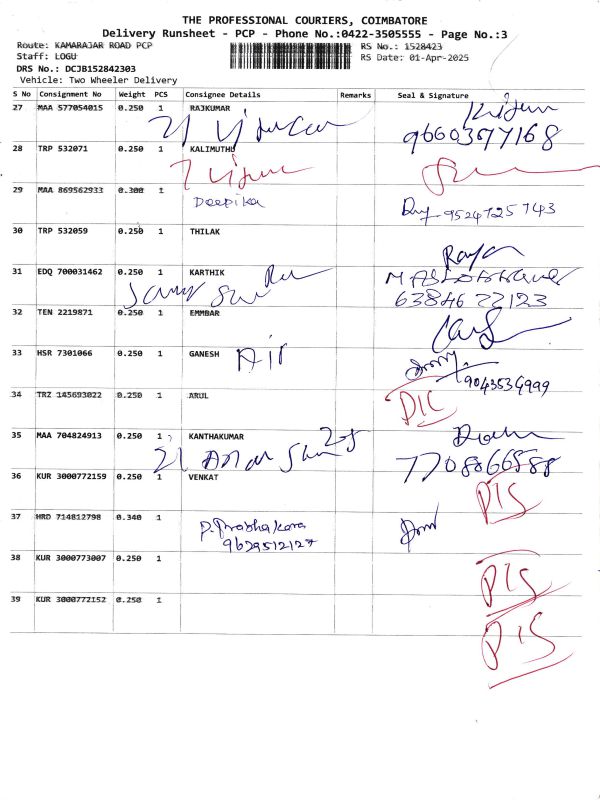 THE PROFESSIONAL COURIERS, COIMBATORE
Delivery Runsheet - PCP - Phone No.:0422-3505555 - Page No.:3
Route: KAMARAJAR ROAD PCP
RS No.: 1528423
Staff: LOGU
RS Date: 01-Apr-2025
DRS No.: DCJB152842303
Vehicle: Two Wheeler Delivery
S No Consignment No Weight PCS Consignee Details Remarks Seal & Signature
27 MAA 577054015 0.250 1 RAJKUMAR
9660397168
28 TRP 532071 0.250 1 KALIMUTHU
29 MAA 869562933 0.300 1
Deepika
9524725743
30 TRP 532059 0.250 1 THILAK
31 EDQ 700031462 0.250 1 KARTHIK
6384622123
32 TEN 2219871 0.250 1 EMMBAR
33 HSR 7301066 0.250 1 GANESH
Air
9043534999
34 TRZ 145693022 0.250 1 ARUL
35 MAA 704824913 0.250 1 KANTHAKUMAR
7708866588
36 KUR 3000772159 0.250 1 VENKAT
37 HRD 714812798 0.340 1
P. Prabhakara
9629512127
38 KUR 3000773007 0.250 1
39 KUR 3000772152 0.250 1